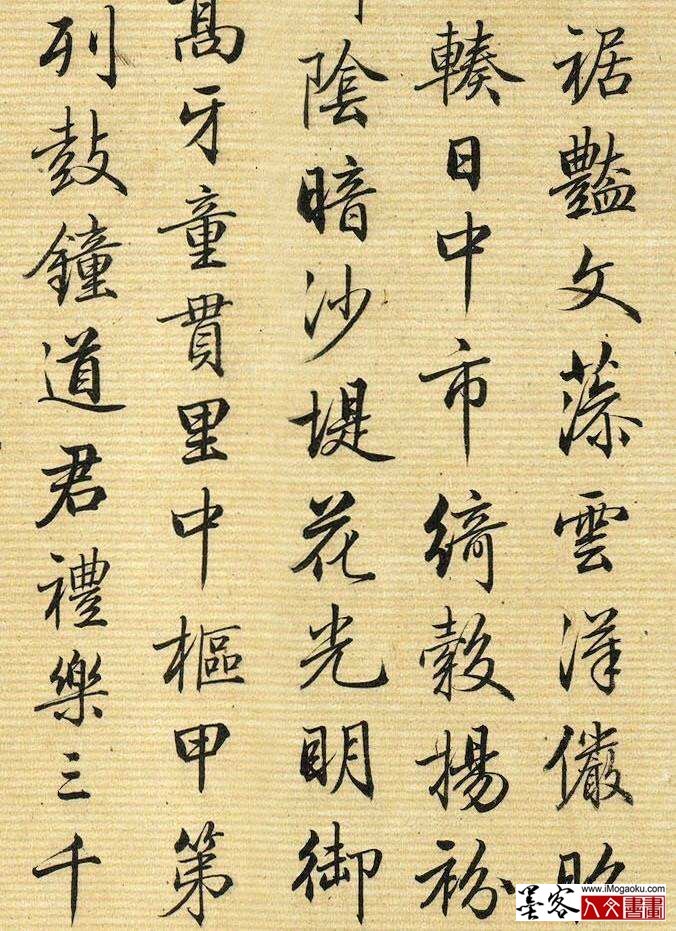 裾豔文藻雲洋儼
輳日中市綺縠揚衯
陰暗沙堤花光明御
高牙童貫里中樞甲第
列鼓鐘道君禮樂三千
www.iMogaoku.com
墨客人文書畫